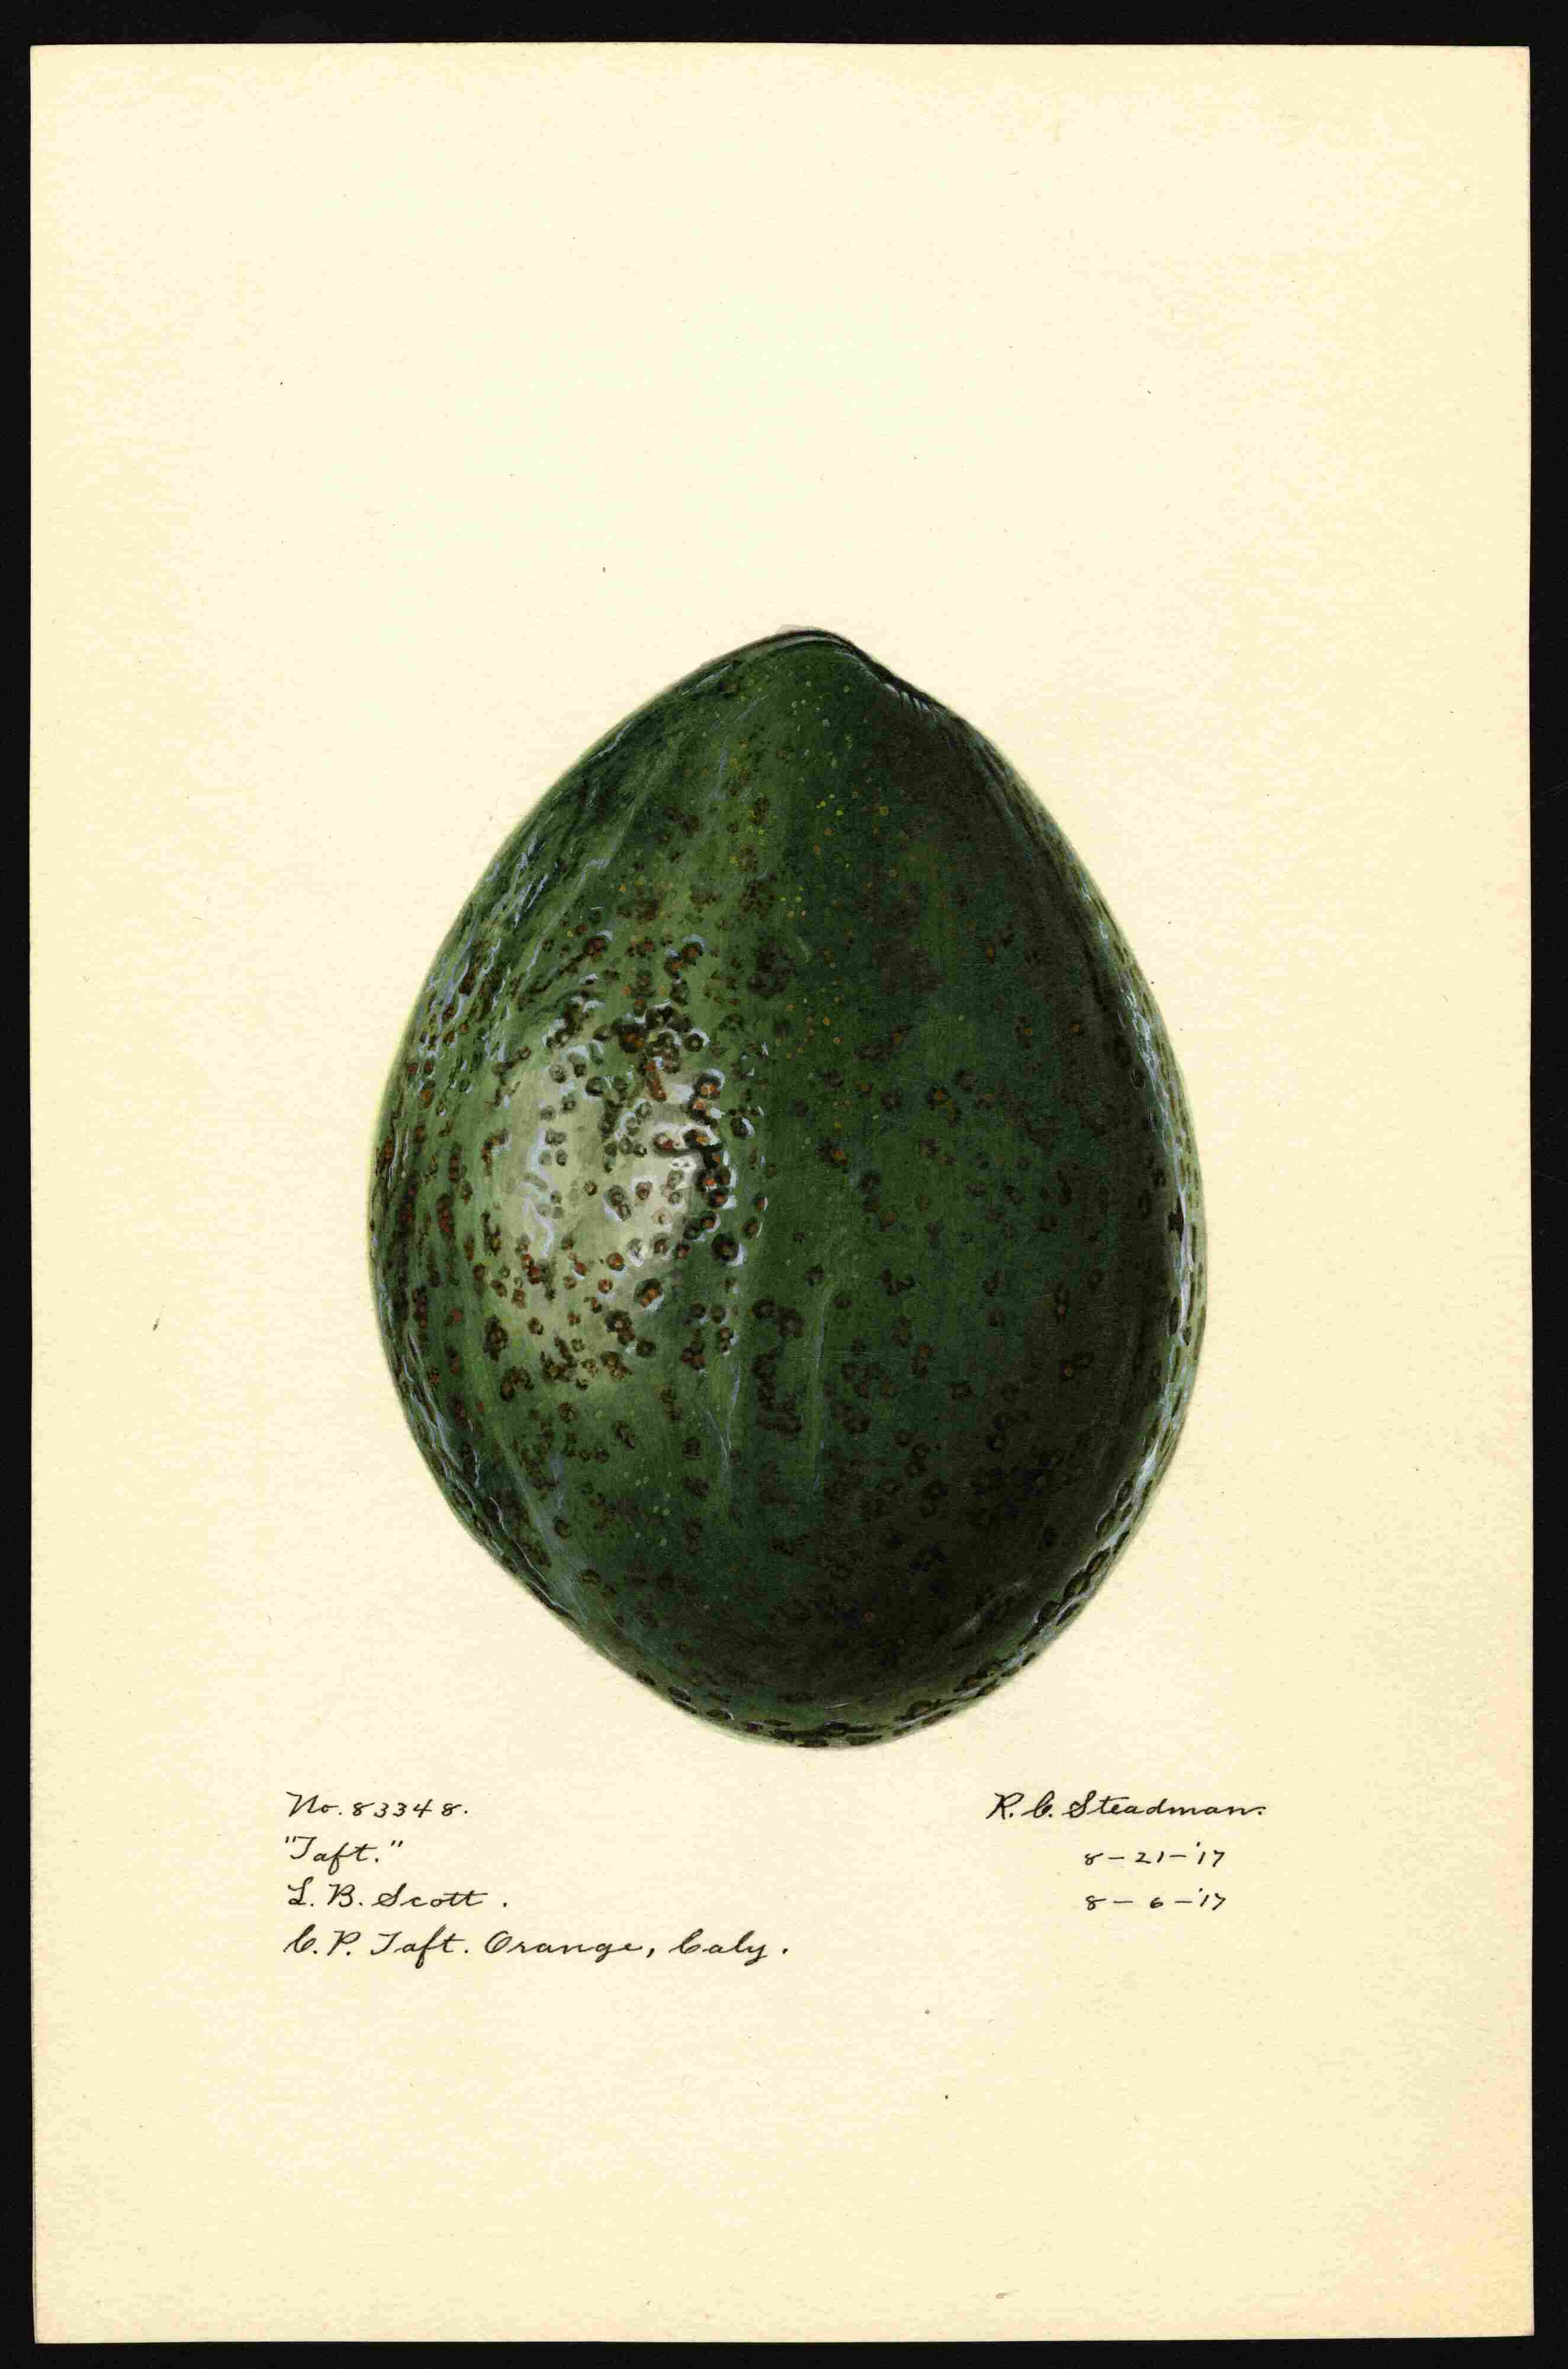 No. 83348.
"Taft."
L. B. Scott.
C. P. Taft. Orange, Caly.
R. C. Steadman.
8-21-'17
8-6-'17